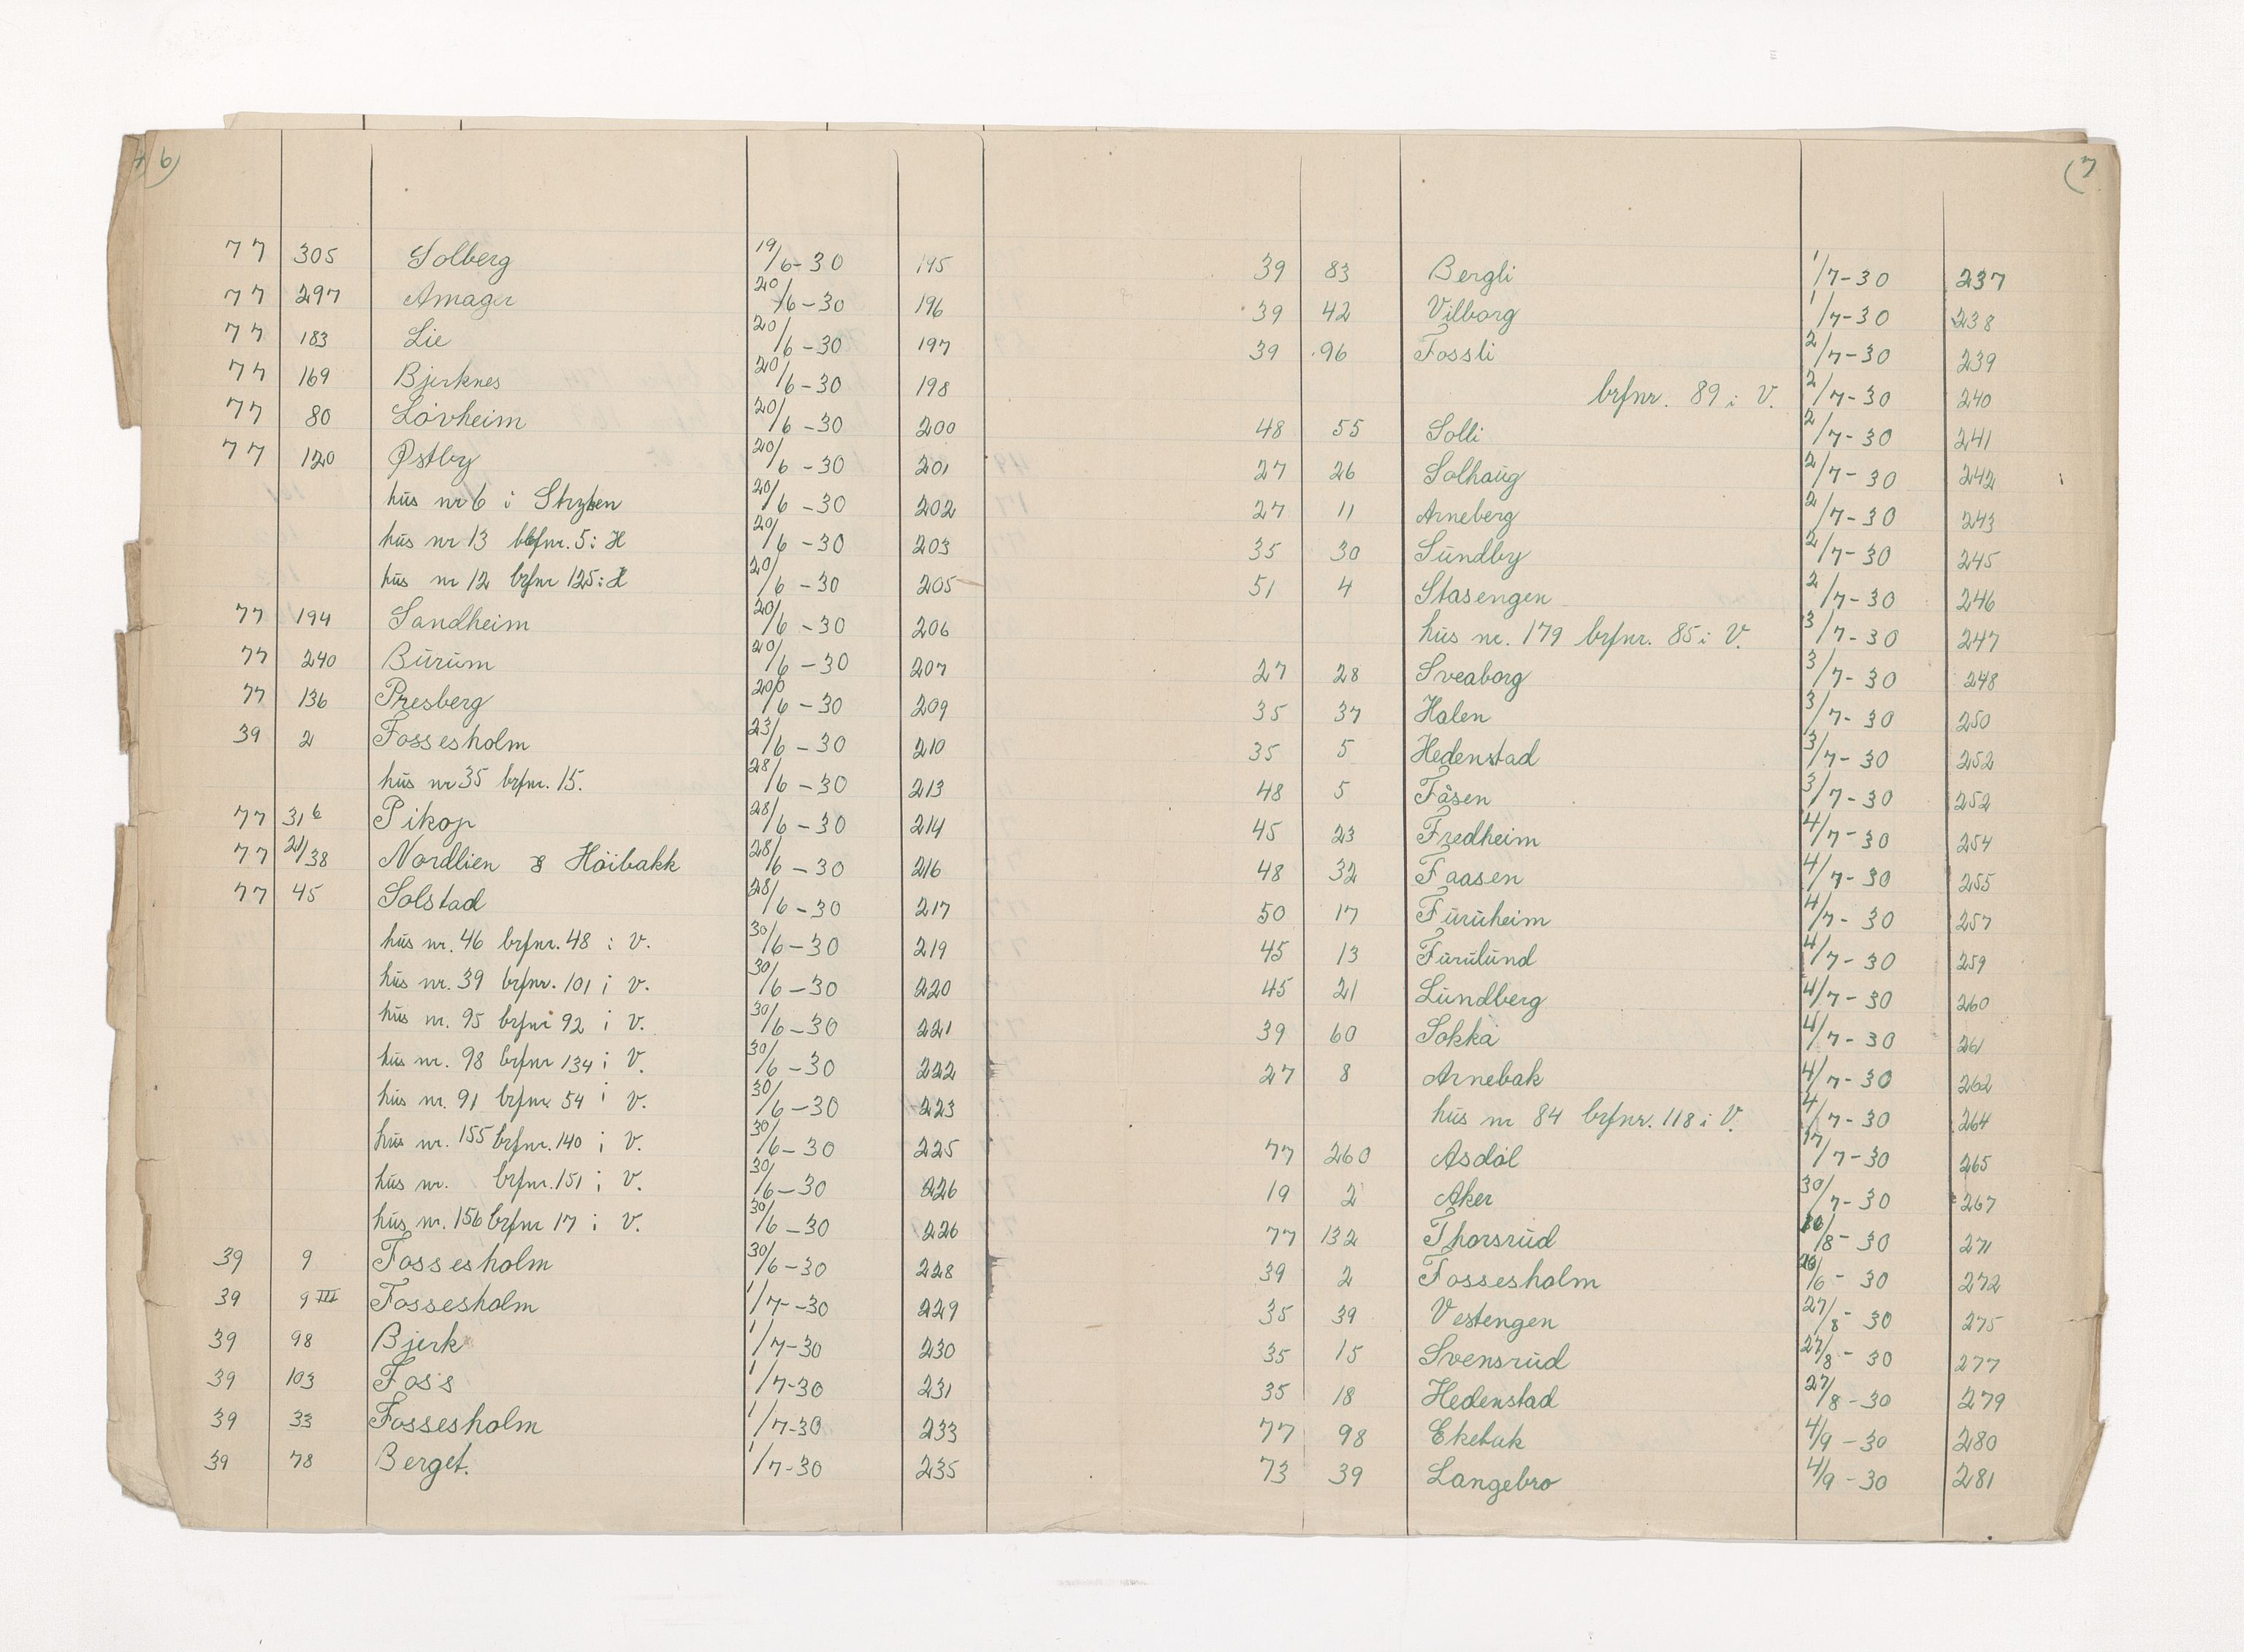 6)
77 305 Solberg 19/6-30 195
77 297 Amager 20/6-30 196
77 183 Lie 20/6-30 197
77 169 Bjerknes 20/6-30 198
77 80 Lövheim 20/6-30 200
77 120 Østby 20/6-30 201
hus nr 6 i 20/6-30 202
hus nr 13 brfnr. 5 i H 20/6-30 203
hus nr 12 brfnr 125 i H 20/6-30 205
77 194 Sandheim 20/6-30 206
77 240 Burum 20/6-30 207
77 136 Presberg 20/6-30 209
39 2 Fossesholm 23/6-30 210
hus nr 35 brfnr. 15. 28/6-30 213
77 316 Pikop 28/6-30 214
77 21/38 Nordlien & Höibakk 28/6-30 216
77 45 Solstad 28/6-30 217
hus nr. 46 brfnr. 48 i V. 30/6-30 219
hus nr. 39 brfnr. 101 i V. 30/6-30 220
hus nr. 95 brfnr 92 i V. 30/6-30 221
hus nr. 98 brfnr 134 i V. 30/6-30 222
hus nr. 91 brfnr. 54 i V. 30/6-30 223
hus nr. 155 brfnr. 140 i V. 30/6-30 225
hus nr. brfnr. 151 i V. 30/6-30 226
hus nr. 156 brfnr 17 i V. 30/6-30 226
39 9 Fossesholm 30/6-30 228
39 9 III Fossesholm 1/7-30 229
39 98 Bjerk 1/7-30 230
39 103 Foss 1/7-30 231
39 33 Fossesholm 1/7-30 233
39 78 Berget. 1/7-30 235
(7
39 83 Bergli 1/7-30 237
39 42 Vilborg 1/7-30 238
39 96 Fossli 2/7-30 239
brfnr. 89 i V. 2/7-30 240
48 55 Solli 2/7-30 241
27 26 Solhaug 2/7-30 242
27 11 Arneberg 2/7-30 243
35 30 Sundby 2/7-30 245
51 4 Stasengen 2/7-30 246
hus nr. 179 brfnr. 85 i V. 3/7-30 247
27 28 Sveaborg 3/7-30 248
35 37 Holen 3/7-30 250
35 5 Hedenstad 3/7-30 252
48 5 Fåsen 3/7-30 252
45 23 Fredheim 4/7-30 254
48 32 Faasen 4/7-30 255
50 17 Furuheim 4/7-30 257
45 13 Furulund 4/7-30 259
45 21 Lundberg 4/7-30 260
39 60 Sokka 4/7-30 261
27 8 Arnebak 4/7-30 262
hus nr 84 brfnr. 118 i V. 4/7-30 264
77 260 Asdöl 17/7-30 265
19 2 Aker 30/7-30 267
77 132 Thorsrud /8-30 271
39 2 Fossesholm /6-30 272
35 39 Vestengen 27/8-30 275
35 15 Svensrud 27/8-30 277
35 18 Hedenstad 27/8-30 279
77 98 Ekebak 4/9-30 280
73 39 Langebro 4/9-30 281